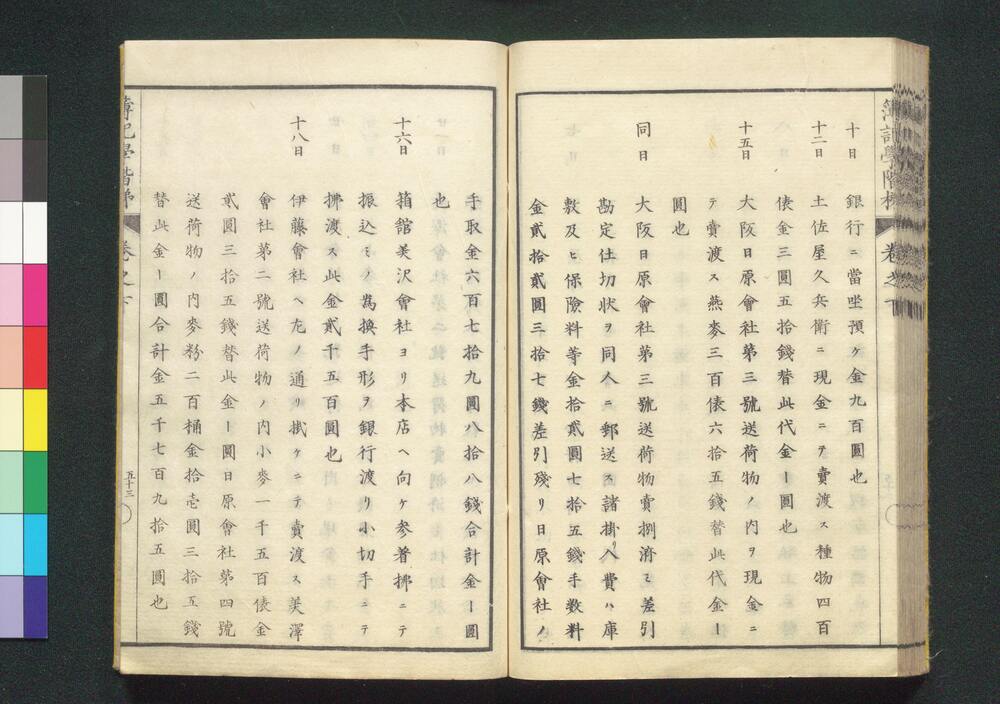 簿記學階梯 卷之下
十日 銀行ニ當坐預ケ金九百圓也
十二日 土佐屋久兵衛ニ現金ニテ賣渡ス種物四百
俵金三圓五拾錢替此代金ー圓也
十五日 大阪日原會社第三號送荷物ノ内ヲ現金ニ
テ賣渡ス燕麥三百俵六拾五錢替此代金ー
圓也
同日 大阪日原會社第三號送荷物賣捌濟ミ差引
勘定仕切狀ヲ同人ニ郵送ス諸掛リ入費ハ庫
敷及ヒ保險料等金拾貳圓七拾五錢手数料
金貳拾貳圓三拾七錢差引殘リ日原會社ノ
手取金六百七拾九圓八拾八錢合計金ー圓
也
十六日 箱舘美沢會社ヨリ本店ヘ向ケ参着拂ニテ
振込ミノ爲換手形ヲ銀行渡リ小切手ニテ
拂渡ス此金貳千五百圓也
十八日 伊藤會社ヘ左ノ通リ掛ケニテ賣渡ス美澤
會社第二號送荷物ノ内小麥一千五百俵金
貳圓三拾五錢替此金ー圓日原會社第四號
送荷物ノ内麥粉二百桶金拾壱圓三拾五錢
替此金ー圓合計金五千七百九拾五圓也
簿記學階梯 卷之下 五十三